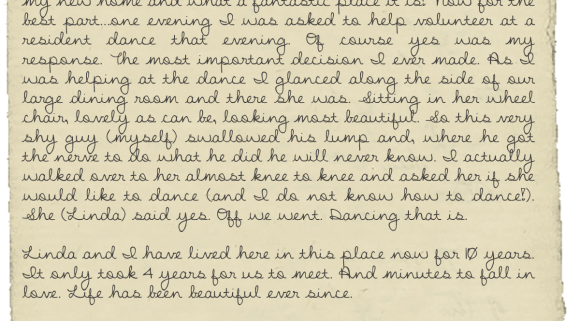 my new home and what a fantastic place it is! Now for the
best part...one evening I was asked to help volunteer at a
resident dance that evening. Of course yes was my
response. The most important decision I ever made. As I
was helping at the dance I glanced along the side of our
large dining room and there she was. Sitting in her wheel
chair, lovely as can be, looking most beautiful. So this very
shy guy (myself) swallowed his lump and, where he got
the nerve to do what he did he will never know. I actually
walked over to her almost knee to knee and asked her if she
would like to dance (and I do not know how to dance!).
She (Linda) said yes. Off we went. Dancing that is.
Linda and I have lived here in this place now for 10 years.
It only took 4 years for us to meet. And minutes to fall in
love. Life has been beautiful ever since.